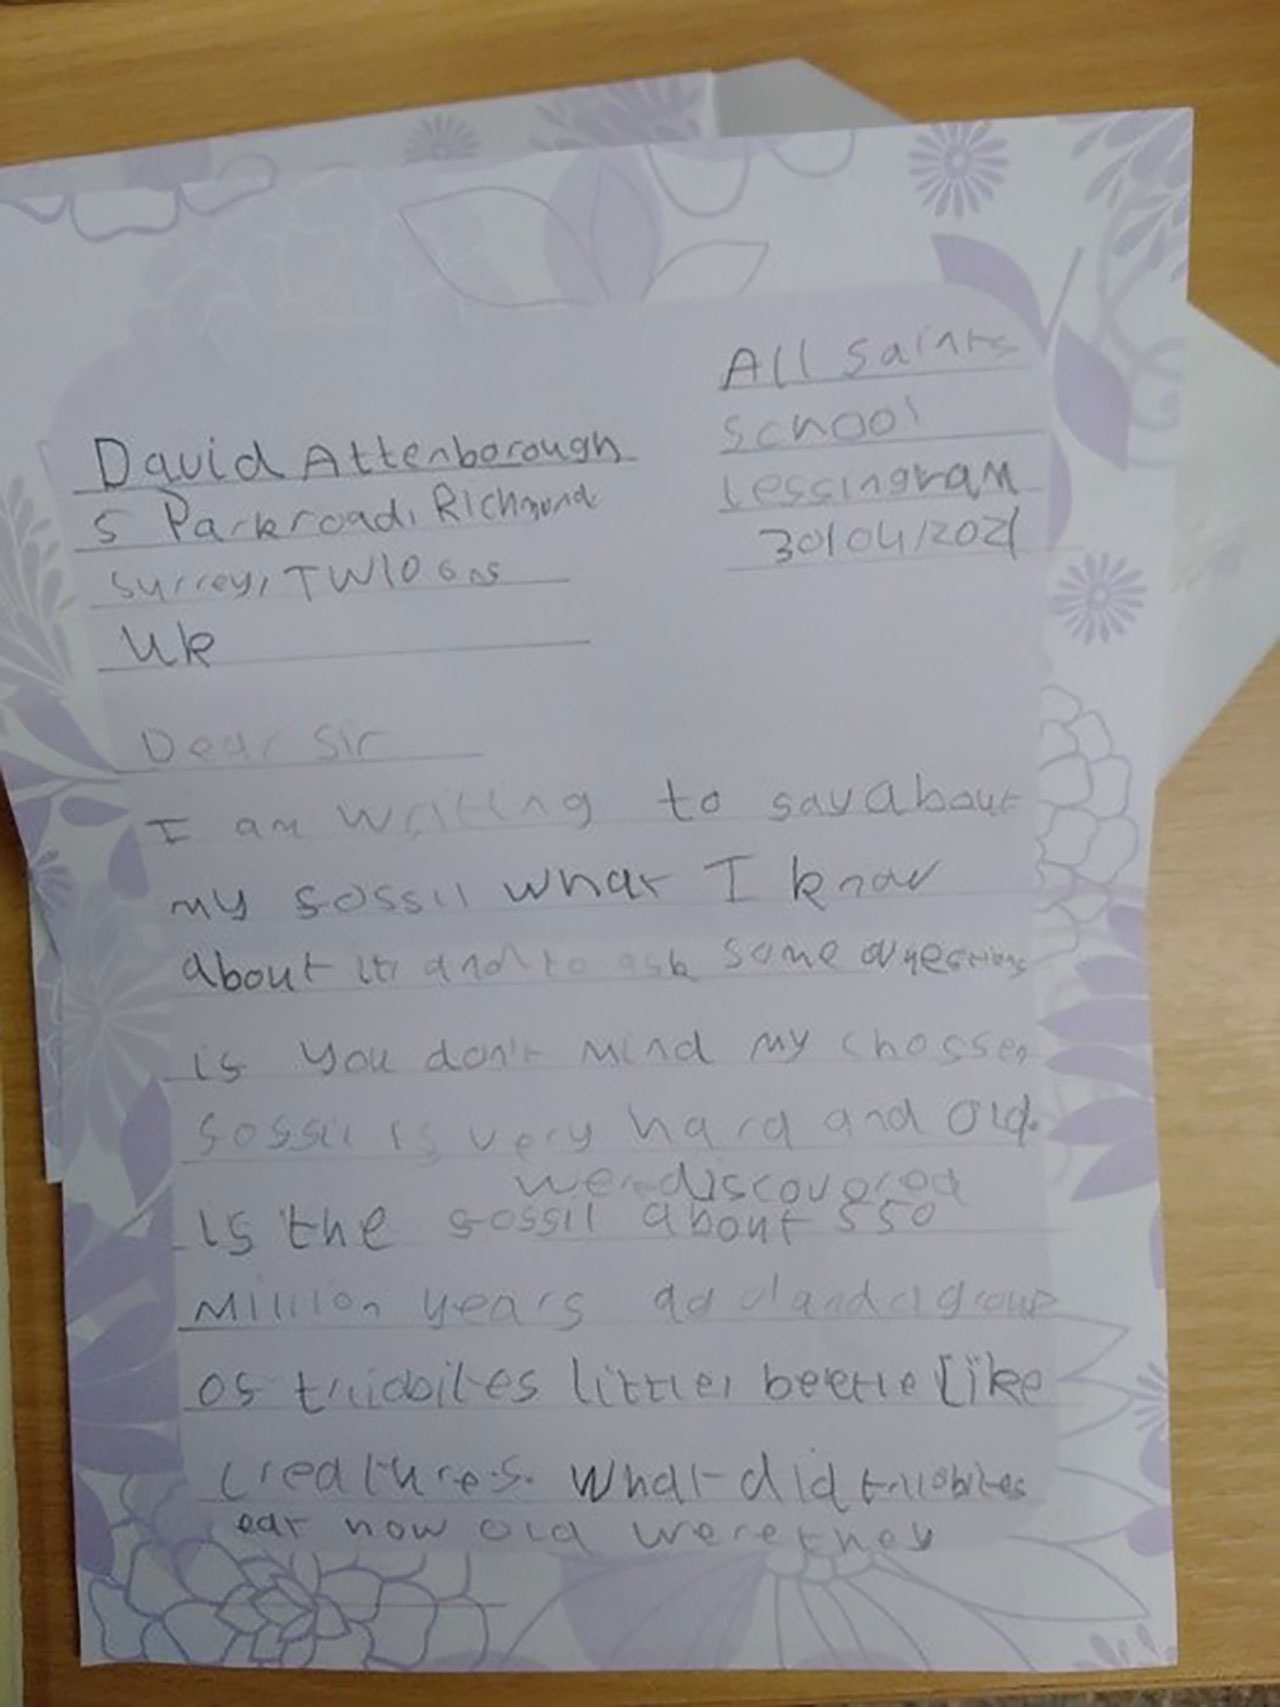 All Saints
School
Lessingram
30/04/2021
David Attenborough
5 Park road, Richmond
Surrey, TW10 6ns
Uk
Dear Sir
I am writing to say about
my fossil what I know
about it and to ask some questions
if you don't mind my chossen
fossil is very hard and old.
were discovered
is the fossil about 550
million years and a group
of trilobites little beetle like
creatures. What did trilobites
eat how old were they